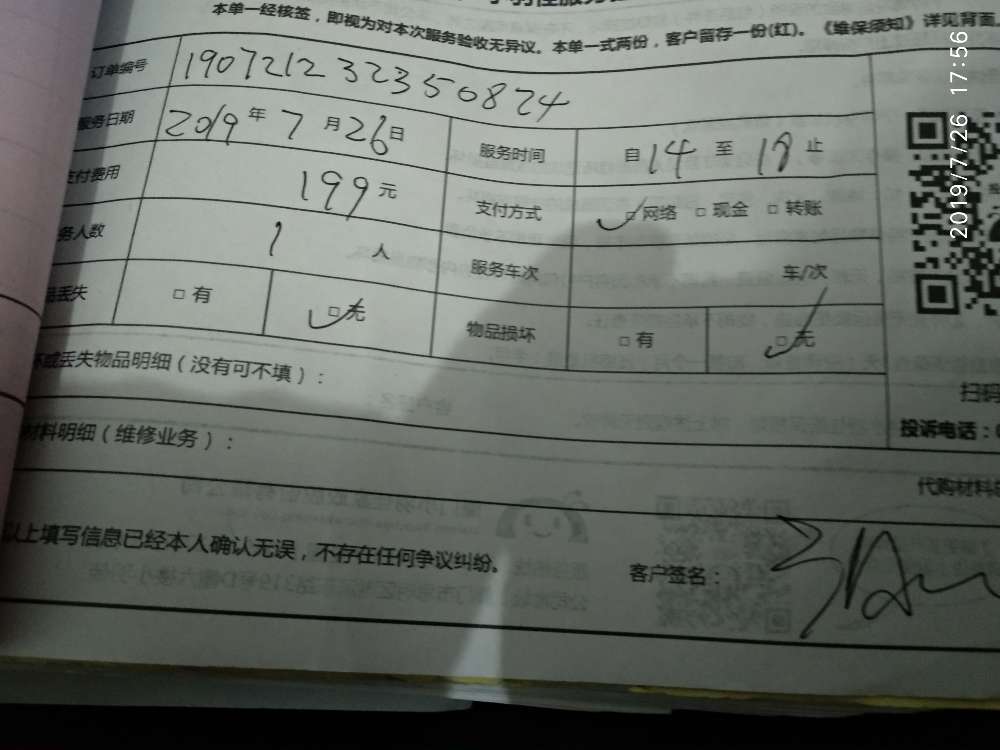 本单一经核签，即视为对本次服务验收无异议。本单一式两份，客户留存一份(红)。《维保须知》详见背面
订单编号 190721232350874
服务日期 2019年7月26日 服务时间 自14至18止
支付费用 199元 支付方式 ☑网络 □现金 □转账
务人数 1人 服务车次 车/次
品丢失 □有 ☑无 物品损坏 □有 ☑无
坏或丢失物品明细（没有可不填）：
扫码
材料明细（维修业务）：
投诉电话：
代购材料
以上填写信息已经本人确认无误，不存在任何争议纠纷。
客户签名：
2019/7/26 17:56